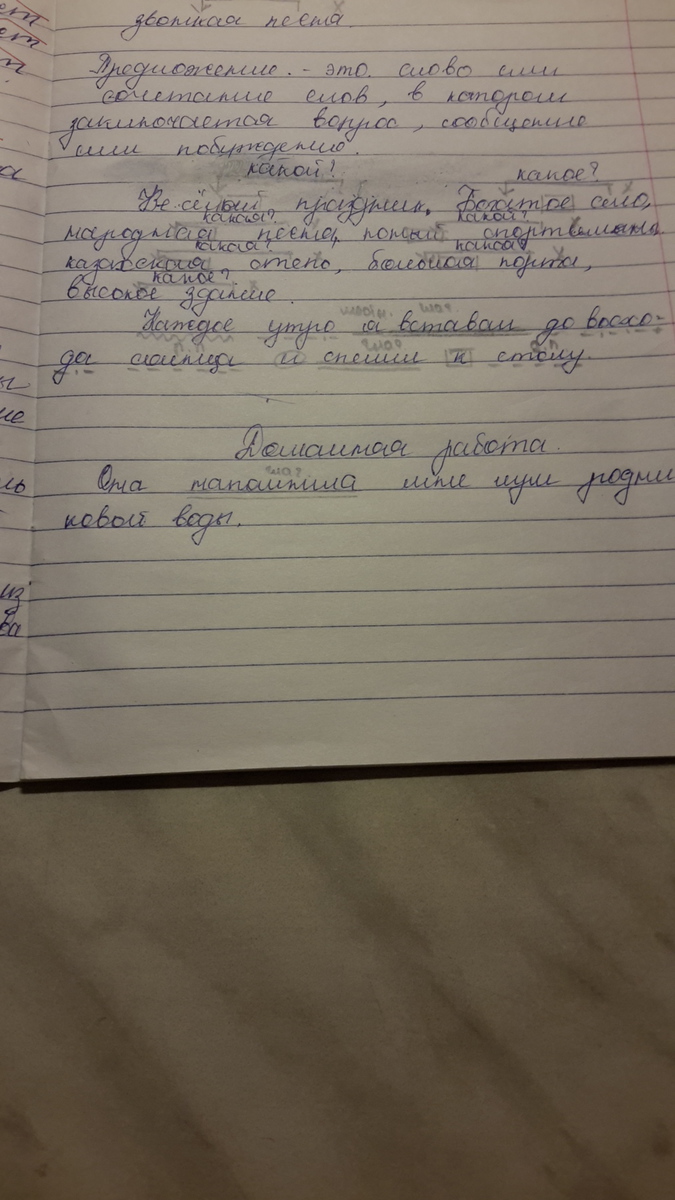 звонкая песня.
Предложение. - это слово или
сочетание слов, в котором
заключается вопрос, сообщение
или побуждение.
какой? какое?
Весёлый праздник. Богатое село,
какая? какой?
народная песня, новый спортсмен.
какая? какая?
казахская степь, большая парта,
какое?
высокое здание.
Каждое утро я вставал до восхо-
да солнца и спешил к столу.
Домашняя работа.
Она напомнила мне шум родни
ковой воды.